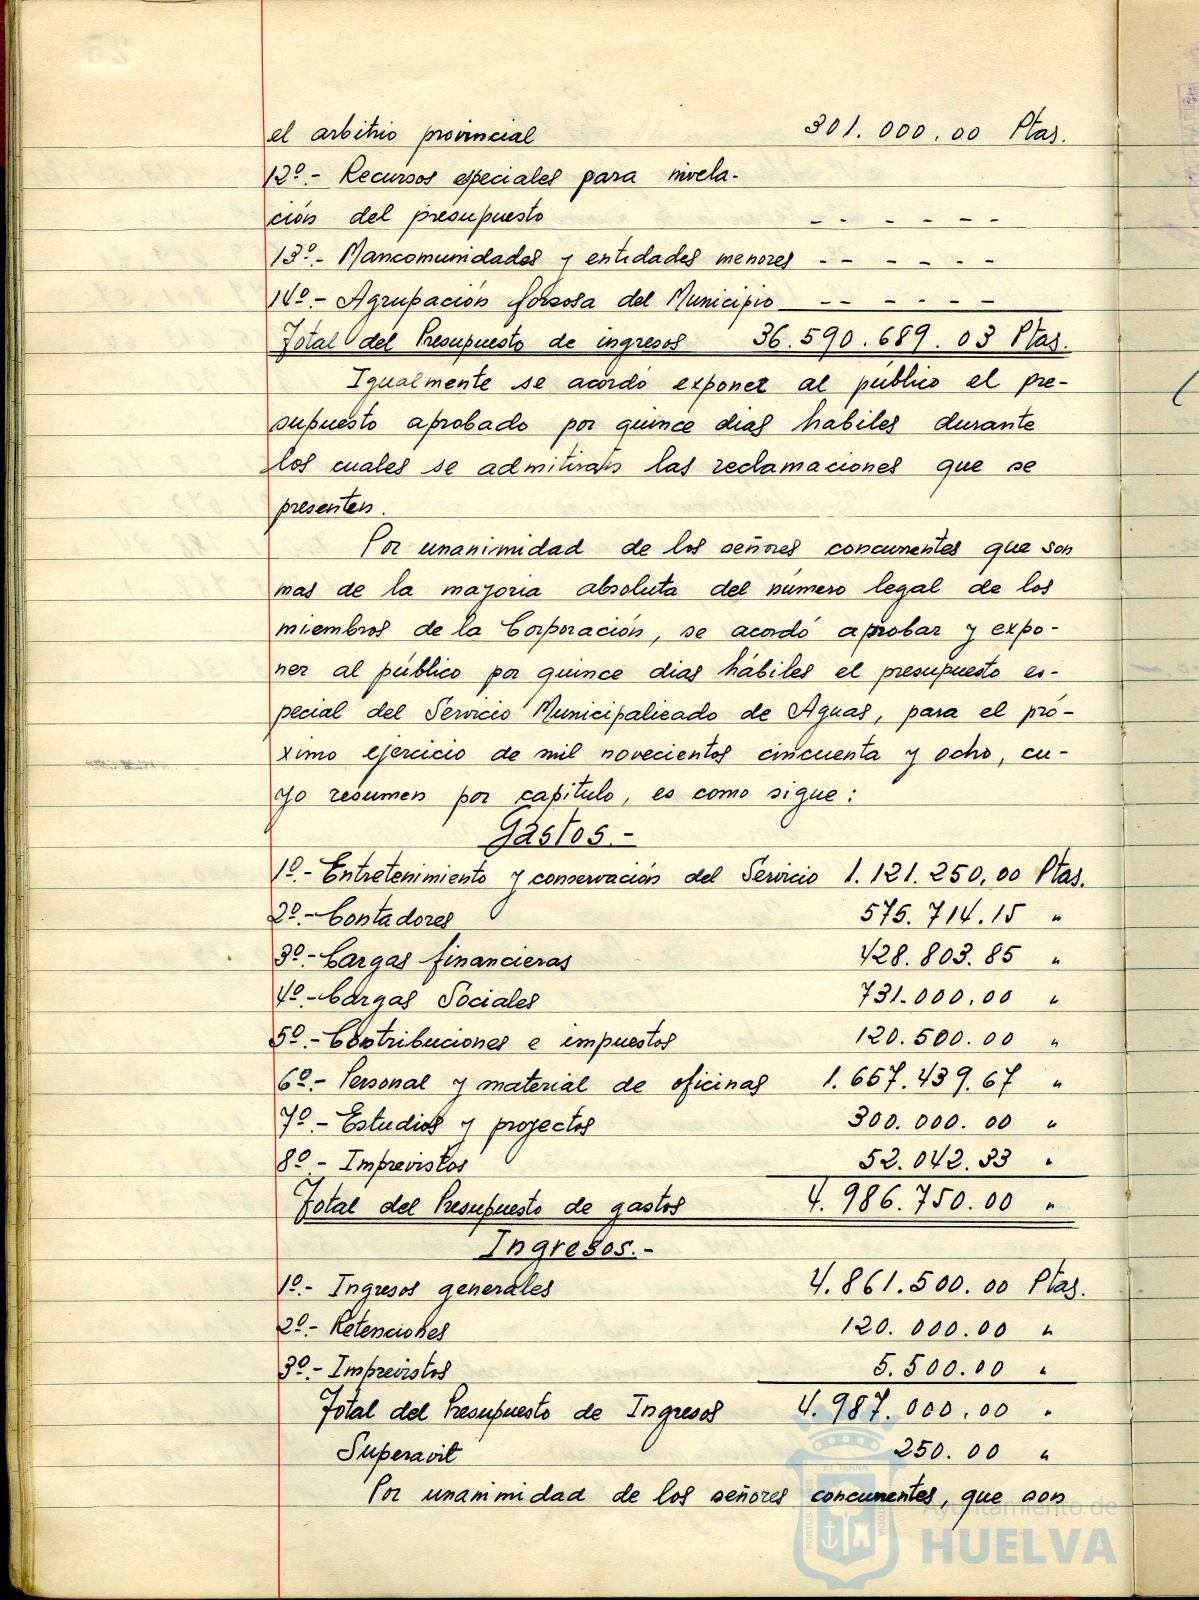 el arbitrio provincial 301.000.00 Ptas.
12º.- Recursos especiales para nivela-
ción del presupuesto - - - - - -
13º.- Mancomunidades y entidades menores - - - - - -
14º.- Agrupación forsosa del Municipio - - - - - -
Total del Presupuesto de ingresos 36.590.689.03 Ptas.
Igualmente se acordó exponer al público el pre-
supuesto aprobado por quince dias habiles durante
los cuales se admitirán las reclamaciones que se
presenten.
Por unanimidad de los señores concurrentes que son
mas de la mayoria absoluta del número legal de los
miembros de la Corporación, se acordó aprobar y expo-
ner al público por quince dias hábiles el presupuesto es-
pecial del Servicio Municipalizado de Aguas, para el pró-
ximo ejercicio de mil novecientos cincuenta y ocho, cu-
yo resumen por capitulo, es como sigue:
Gastos.-
1º.- Entretenimiento y conservación del Servicio 1.121.250,00 Ptas.
2º.- Contadores 575.714.15 "
3º.- Cargas financieras 428.803.85 "
4º.- Cargas Sociales 731.000,00 "
5º.- Contribuciones e impuestos 120.500.00 "
6º.- Personal y material de oficinas 1.657.439.67 "
7º.- Estudios y proyectos 300.000.00 "
8º.- Imprevistos 52.042.33 "
Total del Presupuesto de gastos 4.986.750.00 "
Ingresos.-
1º.- Ingresos generales 4.861.500.00 Ptas.
2º.- Retenciones 120.000.00 "
3º.- Imprevistos 5.500.00 "
Total del Presupuesto de Ingresos 4.987.000,00 "
Superavit 250.00 "
Por unanimidad de los señores concurrentes, que son
Ayuntamiento de
HUELVA